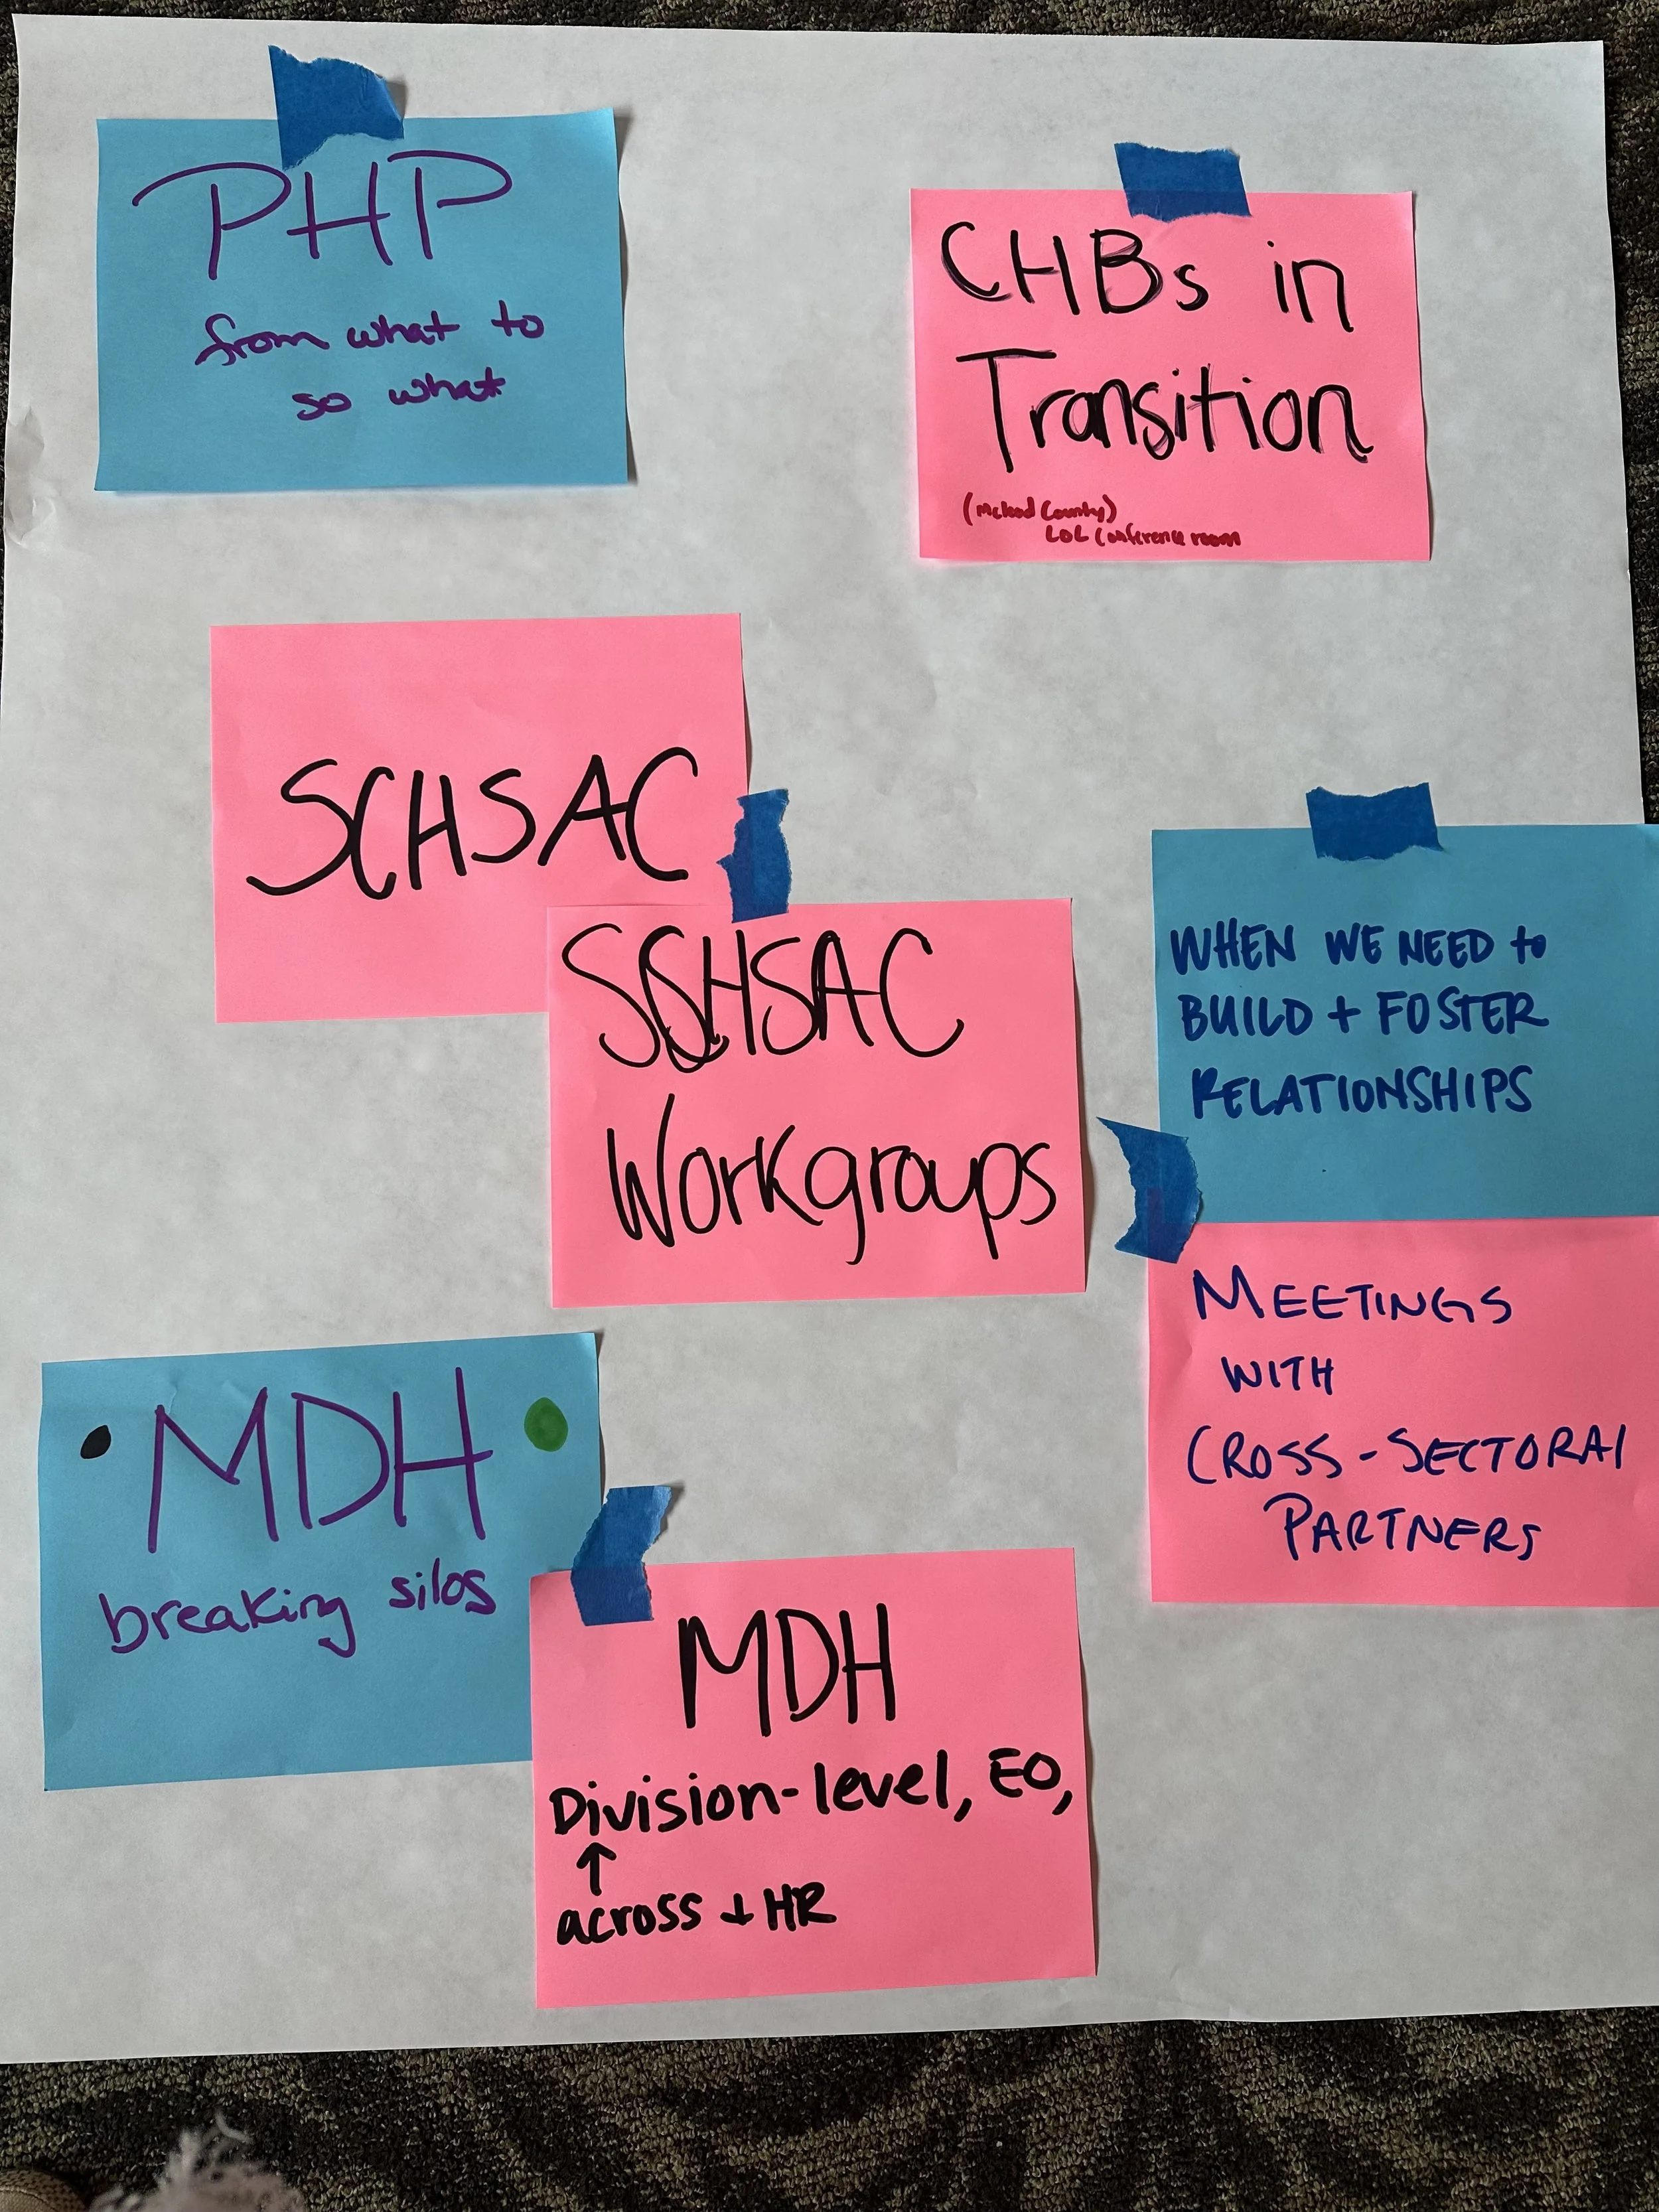 PHP
from what to
so what
CHBs in
Transition
(McLeod County)
LOL Conference room
SCHSAC
SCHSAC
Workgroups
WHEN WE NEED to
BUILD + FOSTER
RELATIONSHIPS
MEETINGS
WITH
CROSS-SECTORAl
PARTNERS
MDH
breaking silos
MDH
Division-level, EO,
↑
across + HR